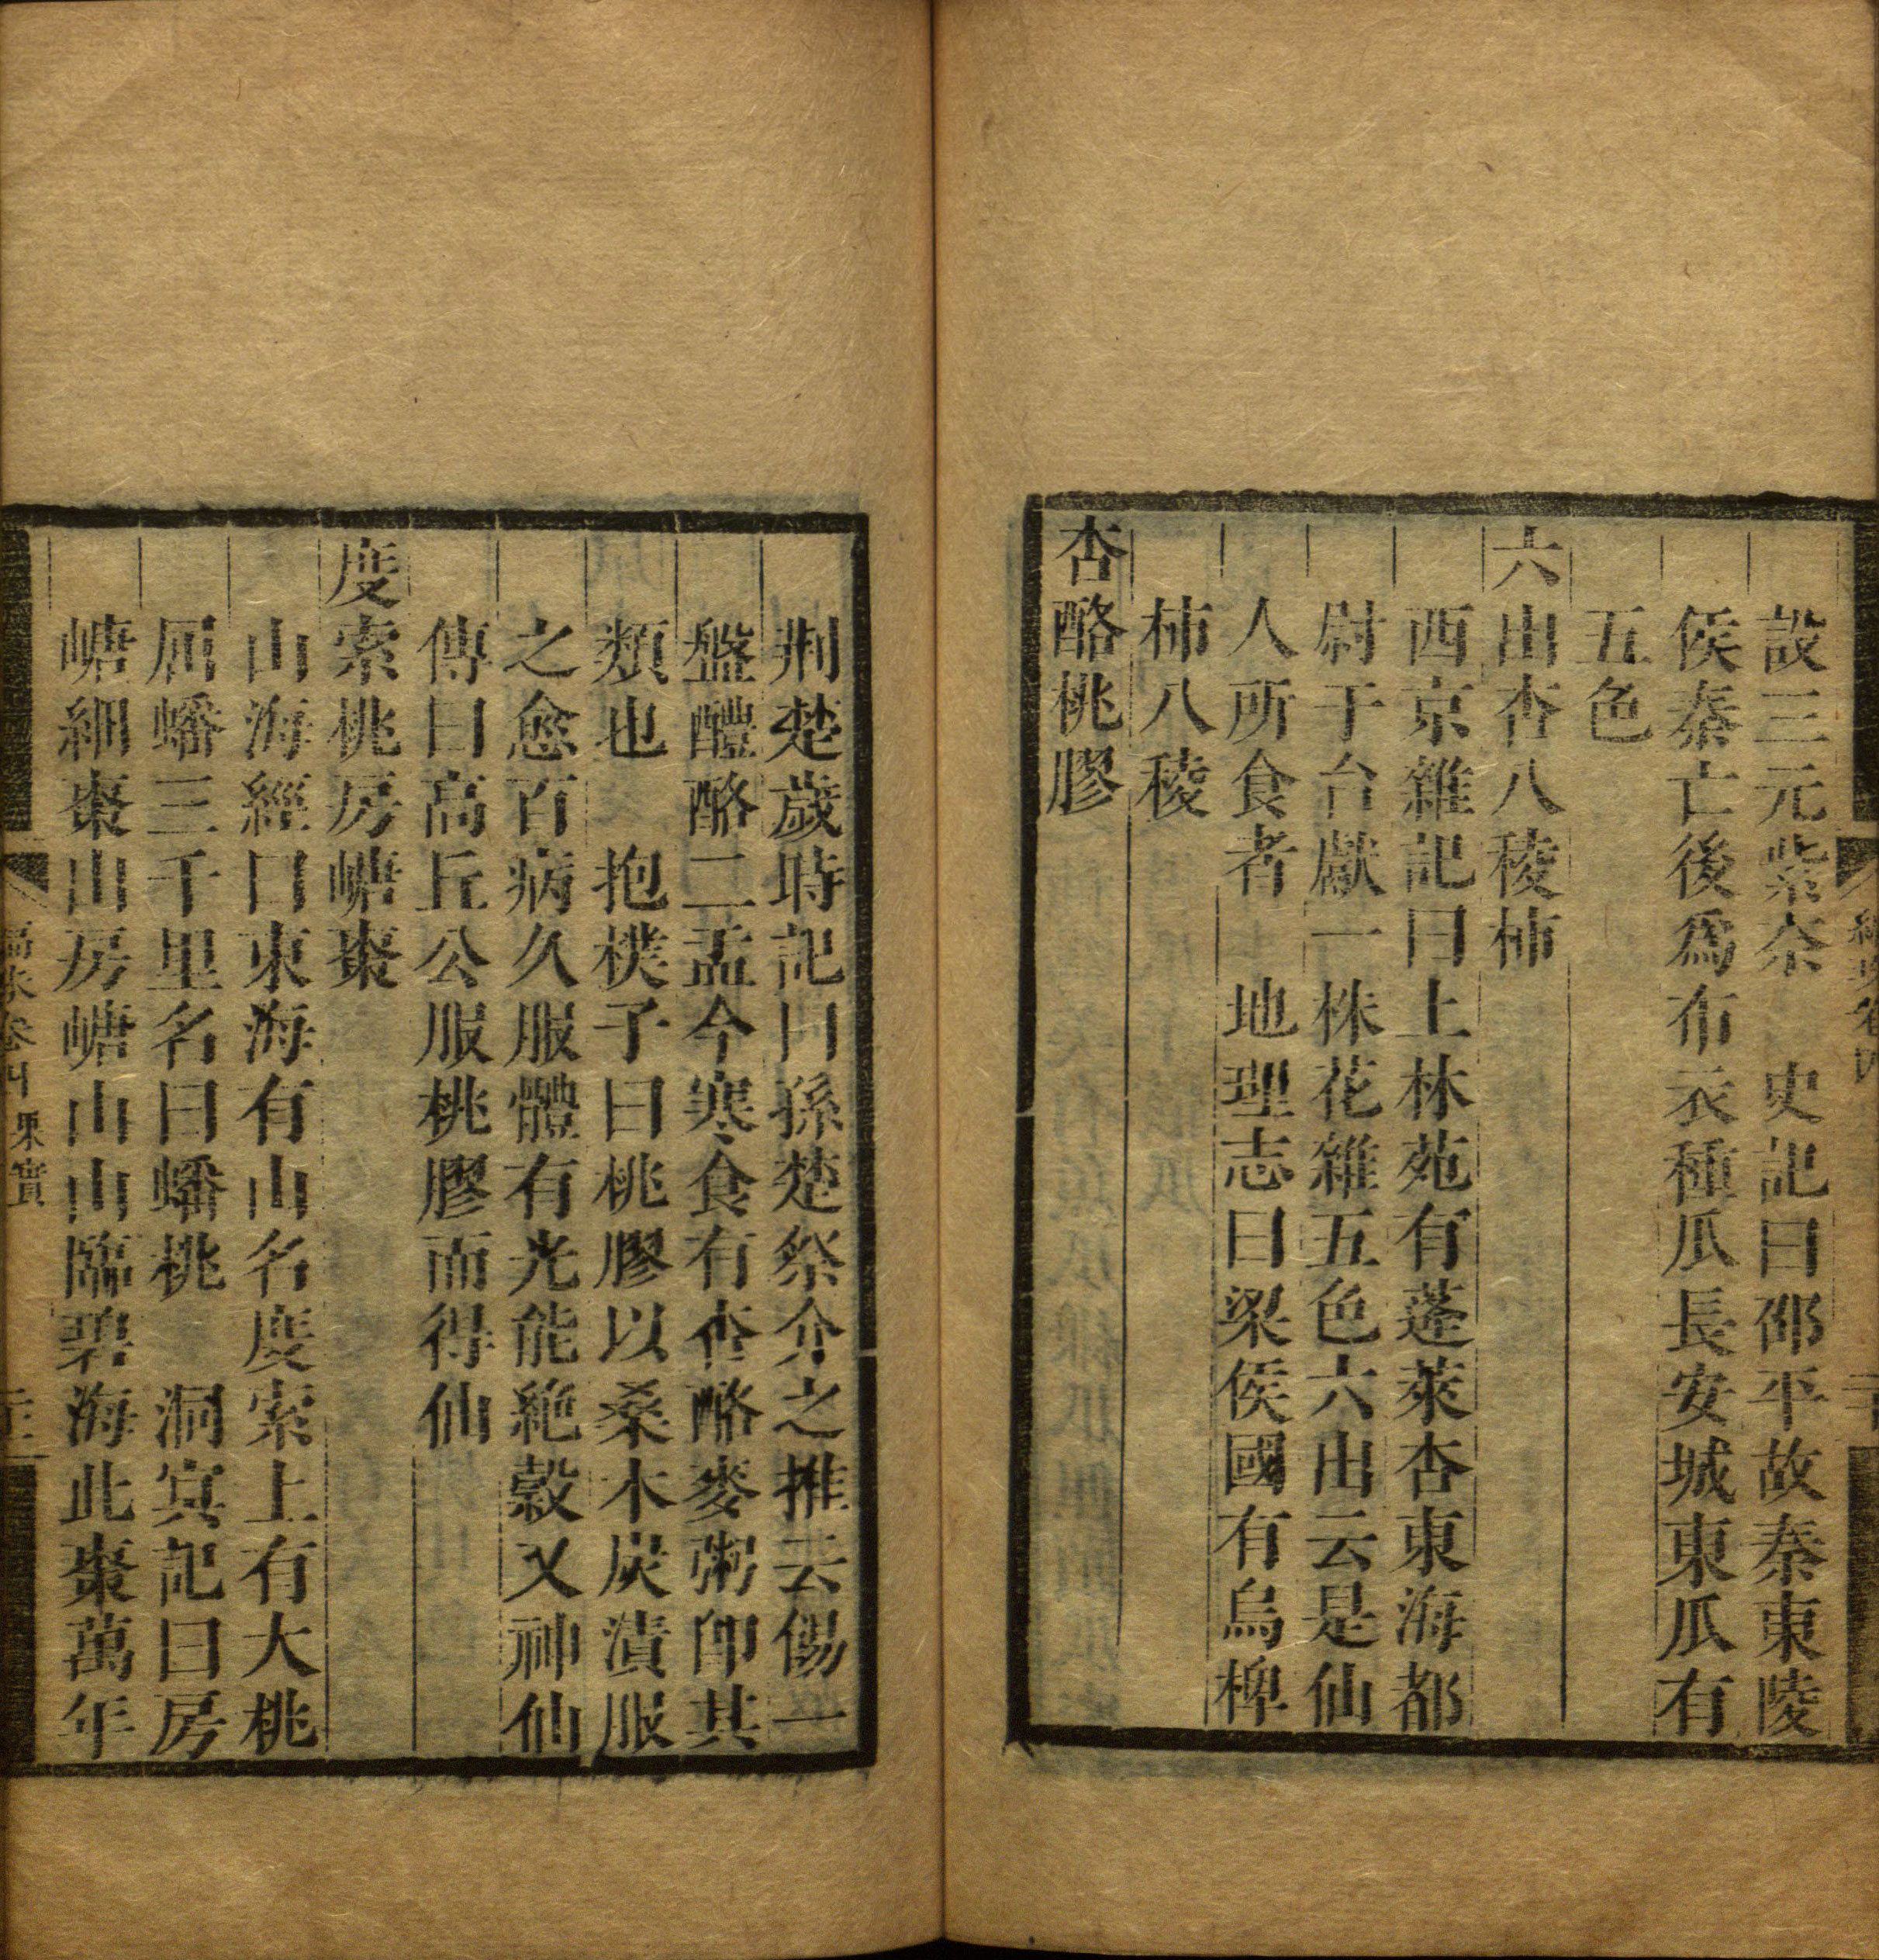 設三元紫柰　史記曰邵平故秦東陵
侯秦亡後爲布衣種瓜長安城東瓜有
五色
六出杏八稜柿
西京雜記曰上林苑有蓬萊杏東海都
尉于台獻一株花雜五色六出云是仙
人所食者　地理志曰梁侯國有烏椑
柿八稜
杏酪桃膠
荆楚歲時記曰孫楚祭介之推云餳一
盤醴酪二盂今寒食有杏酪麥粥卽其
類也　抱樸子曰桃膠以桑木炭漬服
之愈百病久服體有光能絶榖又神仙
傳曰高丘公服桃膠而得仙
度索桃房嵣棗
山海經曰東海有山名度索上有大桃
屈蟠三千里名曰蟠桃　洞㝠記曰房
嵣細棗出房嵣山山臨碧海此棗萬年
卷四 果實